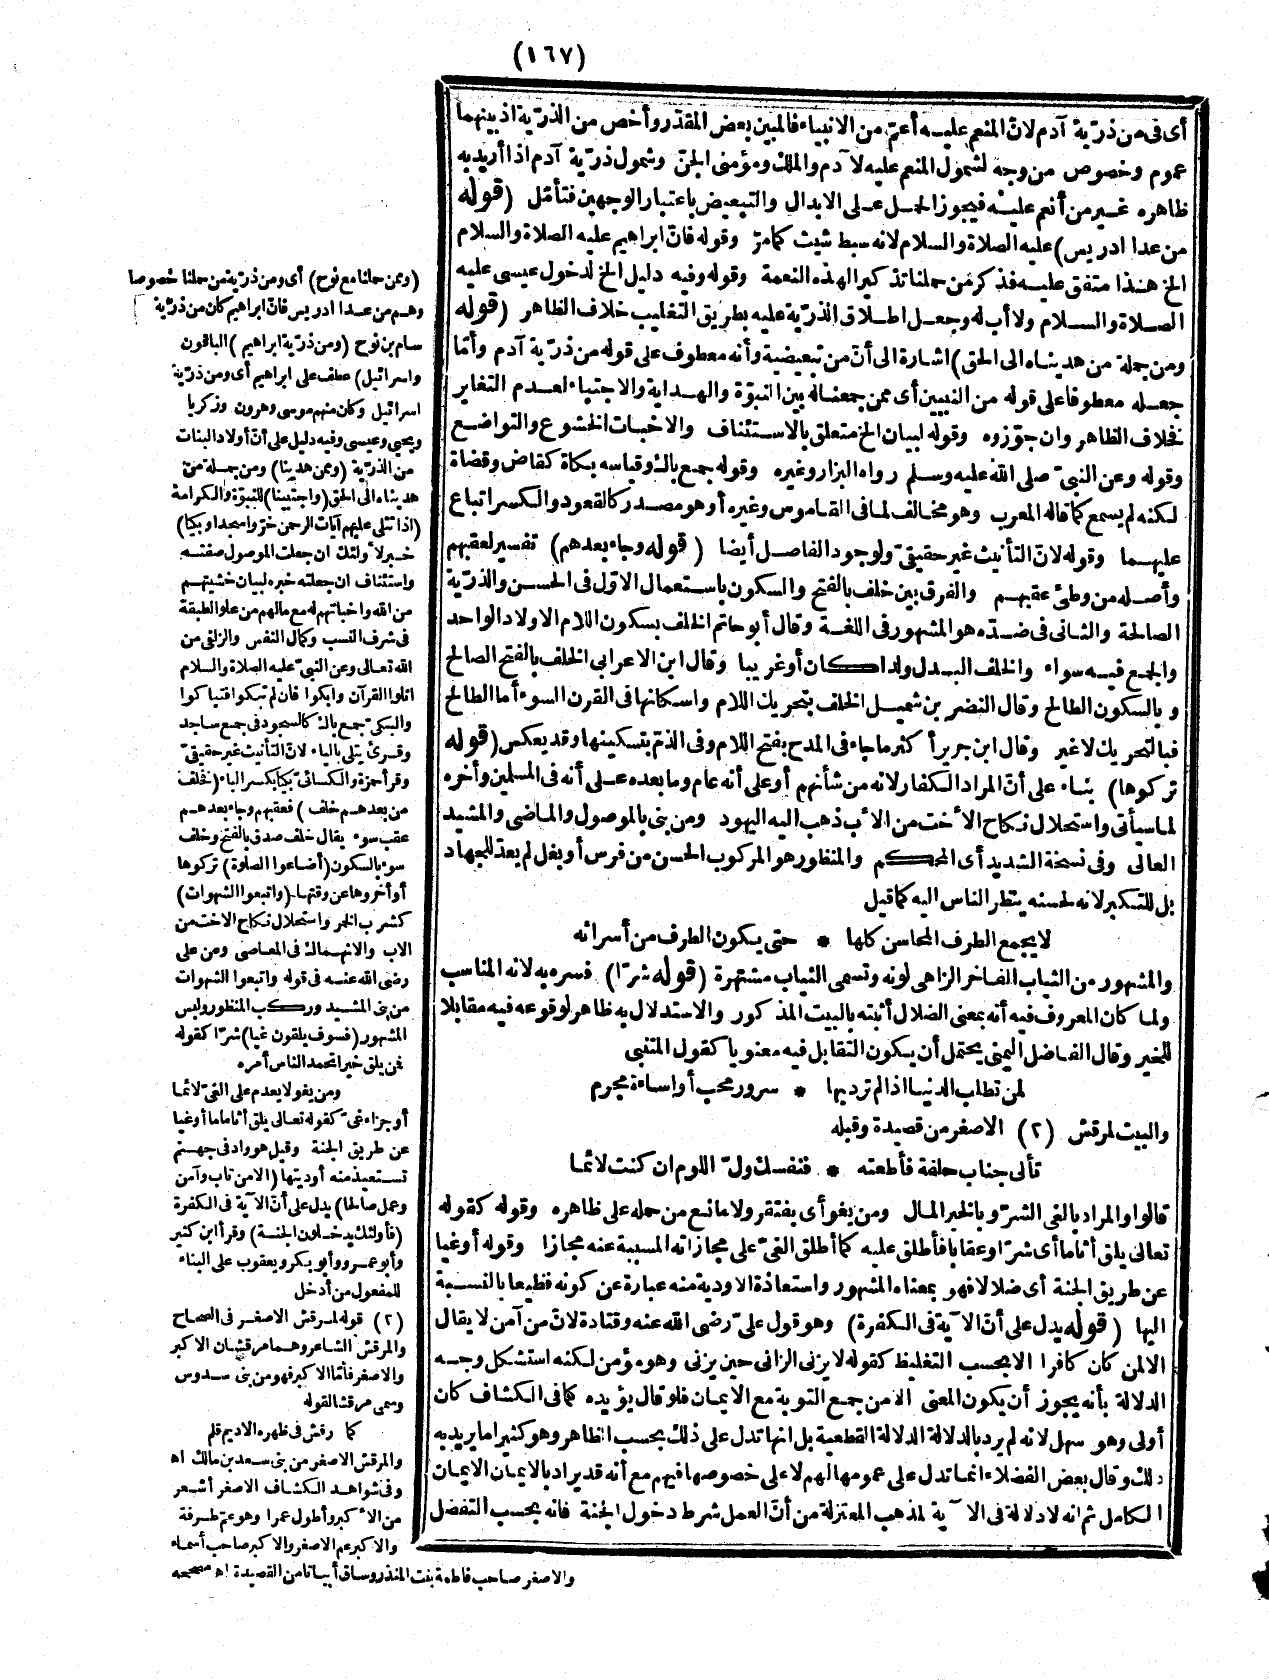 (١٦٧)
أى فى من ذرّية آدم لانّ المنعم عليه أعمّ من الانبياء فالمبين بعض المقدّر وأخص من الذرّية اذ بينهما
عموم وخصوص من وجه لشمول المنعم عليه لآدم والملك ومؤمنى الجنّ وشمول ذرّية آدم اذا أريد به
ظاهره غير من أنعم عليه فيجوز الحمل على الابدال والتبعيض باعتبار الوجهين فتأمّل (قوله
من عدا ادريس) عليه الصلاة والسلام لانه سبط شيث كما مرّ وقوله فانّ ابراهيم عليه الصلاة والسلام
الخ هذا متفق عليه فذكر من حملنا تذكير الهذه النعمة وقوله وفيه دليل الخ لدخول عيسى عليه
الصلاة والسلام ولا أب له وجعل اطلاق الذرّية عليه بطريق التغليب خلاف الظاهر (قوله
ومن جملة من هديناه الى الحق) اشارة الى أنّ من تبعيضية وأنه معطوف على قوله من ذرّية آدم وأمّا
جعله معطوفا على قوله من النبيين أى ممن جمعنا له بين النبوّة والهداية والاجتباء لعدم التغاير
فخلاف الظاهر وان جوّزوه وقوله لبيان الخ متعلق بالاستئناف والاخبات الخشوع والتواضع
وقوله وعن النبىّ صلى الله عليه وسلم رواه البزار وغيره وقوله جمع باك وقياسه بكاة كقاض وقضاة
لكنه لم يسمع كما قاله المعرب وهو مخالف لما فى القاموس وغيره أو هو مصدر كالقعود والكسر اتباع
عليهما وقوله لانّ التأنيث غير حقيقىّ ولوجود الفاصل أيضا (قوله وجاء بعدهم) تفسير لعقبهم
وأصله من وطئ عقبهم والفرق بين خلف بالفتح والسكون باستعمال الاوّل فى الحسن والذرّية
الصالحة والثانى فى ضدّه هو المشهور فى اللغة وقال أبو حاتم الخلف بسكون اللام الاولاد الواحد
والجمع فيه سواء والخلف البدل ولدا كان أو غريبا وقال ابن الاعرابى الخلف بالفتح الصالح
وبالسكون الطالح وقال النضر بن شميل الخلف بتحريك اللام واسكانها فى القرن السوء أما الطالح
فبالتحريك لا غير وقال ابن جرير أكثر ما جاء فى المدح بفتح اللام وفى الذمّ بتسكينها وقد يعكس (قوله
تركوها) بناء على أنّ المراد الكفار لانه من شأنهم أو على أنه عام وما بعده على أنه فى المسلمين وأخره
لما سيأتى واستحلال نكاح الأخت من الأب ذهب اليه اليهود ومن بنى بالموصول والماضى والمشيد
العالى وفى نسخة الشديد أى المحكم والمنظور هو المركوب الحسن من فرس أو بغل لم يعدّ للجهاد
بل للتكبر لانه لحسنه ينتظر الناس اليه كما قيل
لا يجمع الطرف المحاسن كلها * حتى يكون الطرف من أسرائه
والمشهور من الثياب الفاخر الزاهى لونه وتسمى الثياب مشتهرة (قوله شرّا) فسره به لانه المناسب
ولما كان المعروف فيه أنه بمعنى الضلال أثبته بالبيت المذكور والاستدلال به ظاهر لوقوعه فيه مقابلا
للخير وقال الفاضل اليمنى يحتمل أن يكون التقابل فيه معنويا كقول المتنبى
لمن تطلب الدنيا اذا لم ترد بها * سرور محب أو اساءة مجرم
والبيت لمرقش (٢) الاصغر من قصيدة وقبله
تألى جناب حلفة فأطعته * فنفسك ولّ اللوم ان كنت لائما
قالوا والمراد بالغى الشرّ وبالخير المال ومن يغو أى يفتقر ولا مانع من حمله على ظاهره وقوله كقوله
تعالى يلق أثاما أى شرّا وعقابا فأطلق عليه كما أطلق الغىّ على مجازاته المسببة عنه مجازا وقوله أو غيا
عن طريق الجنة أى ضلالا فهو بمعناه المشهور واستعاذة الاودية منه عبارة عن كونه فظيعا بالنسبة
اليها (قوله يدل على أنّ الآية فى الكفرة) وهو قول علىّ رضى الله عنه وقتادة لانّ من آمن لا يقال
الا لمن كان كافرا الا بحسب التغليظ كقوله لا يزنى الزانى حين يزنى وهو مؤمن لكنه استشكل وجه
الدلالة بأنه يجوز أن يكون المعنى الا من جمع التوبة مع الايمان فلو قال يؤيده كما فى الكشاف كان
أولى وهو سهل لانه لم يرد بالدلالة الدلالة القطعية بل انها تدل على ذلك بحسب الظاهر وهو كثيرا ما يريد به
ذلك وقال بعض الفضلاء انما تدل على عمومها لهم لا على خصوصها فيهم مع أنه قد يراد بالايمان الايمان
الكامل ثم انه لا دلالة فى الآية لمذهب المعتزلة من أنّ العمل شرط دخول الجنة فانه بحسب التفضل
(وممن حملنا مع نوح) أى ومن ذرّية من حملنا خصوصا
وهم من عدا ادريس فانّ ابراهيم كان من ذرّية
سام بن نوح (ومن ذرّية ابراهيم) الباقون
(واسرائيل) عطف على ابراهيم أى ومن ذرّية
اسرائيل وكان منهم موسى وهرون وزكريا
ويحيى وعيسى وفيه دليل على أنّ أولاد البنات
من الذرّية (وممن هدينا) ومن جملة من
هديناه الى الحق (واجتبينا) للنبوّة والكرامة
(اذا تتلى عليهم آيات الرحمن خرّوا سجدا وبكيا)
خبر لأولئك ان جعلت الموصول صفته
واستئناف ان جعلته خبره لبيان خشيتهم
من الله واخباتهم له مع مالهم من علوّ الطبقة
فى شرف النسب وكمال النفس والزلفى من
الله تعالى وعن النبىّ عليه الصلاة والسلام
اتلوا القرآن وابكوا فان لم تبكوا فتباكوا
والبكىّ جمع باك كالسجود فى جمع ساجد
وقرئ يتلى بالياء لانّ التأنيث غير حقيقىّ
وقرأ حمزة والكسائى بكيا بكسر الباء (فخلف
من بعدهم خلف) فعقبهم وجاء بعدهم
عقب سوء يقال خلف صدق بالفتح وخلف
سوء بالسكون (أضاعوا الصلوة) تركوها
أو أخروها عن وقتها (واتبعوا الشهوات)
كشرب الخمر واستحلال نكاح الاخت من
الاب والانهماك فى المعاصى وعن على
رضى الله عنه فى قوله واتبعوا الشهوات
من بنى المشيد وركب المنظور ولبس
المشهور (فسوف يلقون غيا) شرّا كقوله
فمن يلق خيرا يحمد الناس أمره
ومن يغو لا يعدم على الغىّ لائما
أو جزاء غىّ كقوله تعالى يلق أثاما أو غيا
عن طريق الجنة وقيل هو واد فى جهنم
تستعيذ منه أوديتها (الا من تاب وآمن
وعمل صالحا) يدل على أنّ الآية فى الكفرة
(فأولئك يدخلون الجنة) وقرأ ابن كثير
وأبو عمرو وأبو بكر ويعقوب على البناء
للمفعول من أدخل
(٢) قوله لمرقش الاصغر فى الصحاح
والمرقش الشاعر وهما مرقشان الاكبر
والاصغر فأمّا الاكبر فهو من بنى سدوس
وسمى مرقشا لقوله
كما رقش فى ظهر الاديم قلم
والمرقش الاصغر من بنى سعد بن مالك اه
وفى شواهد الكشاف الاصغر أشعر
من الأكبر وأطول عمرا وهو عمّ طرفة
والاكبر عم الاصغر والاكبر صاحب أسماء
والاصغر صاحب فاطمة بنت المنذر وساق أبياتا من القصيدة اه مصححه